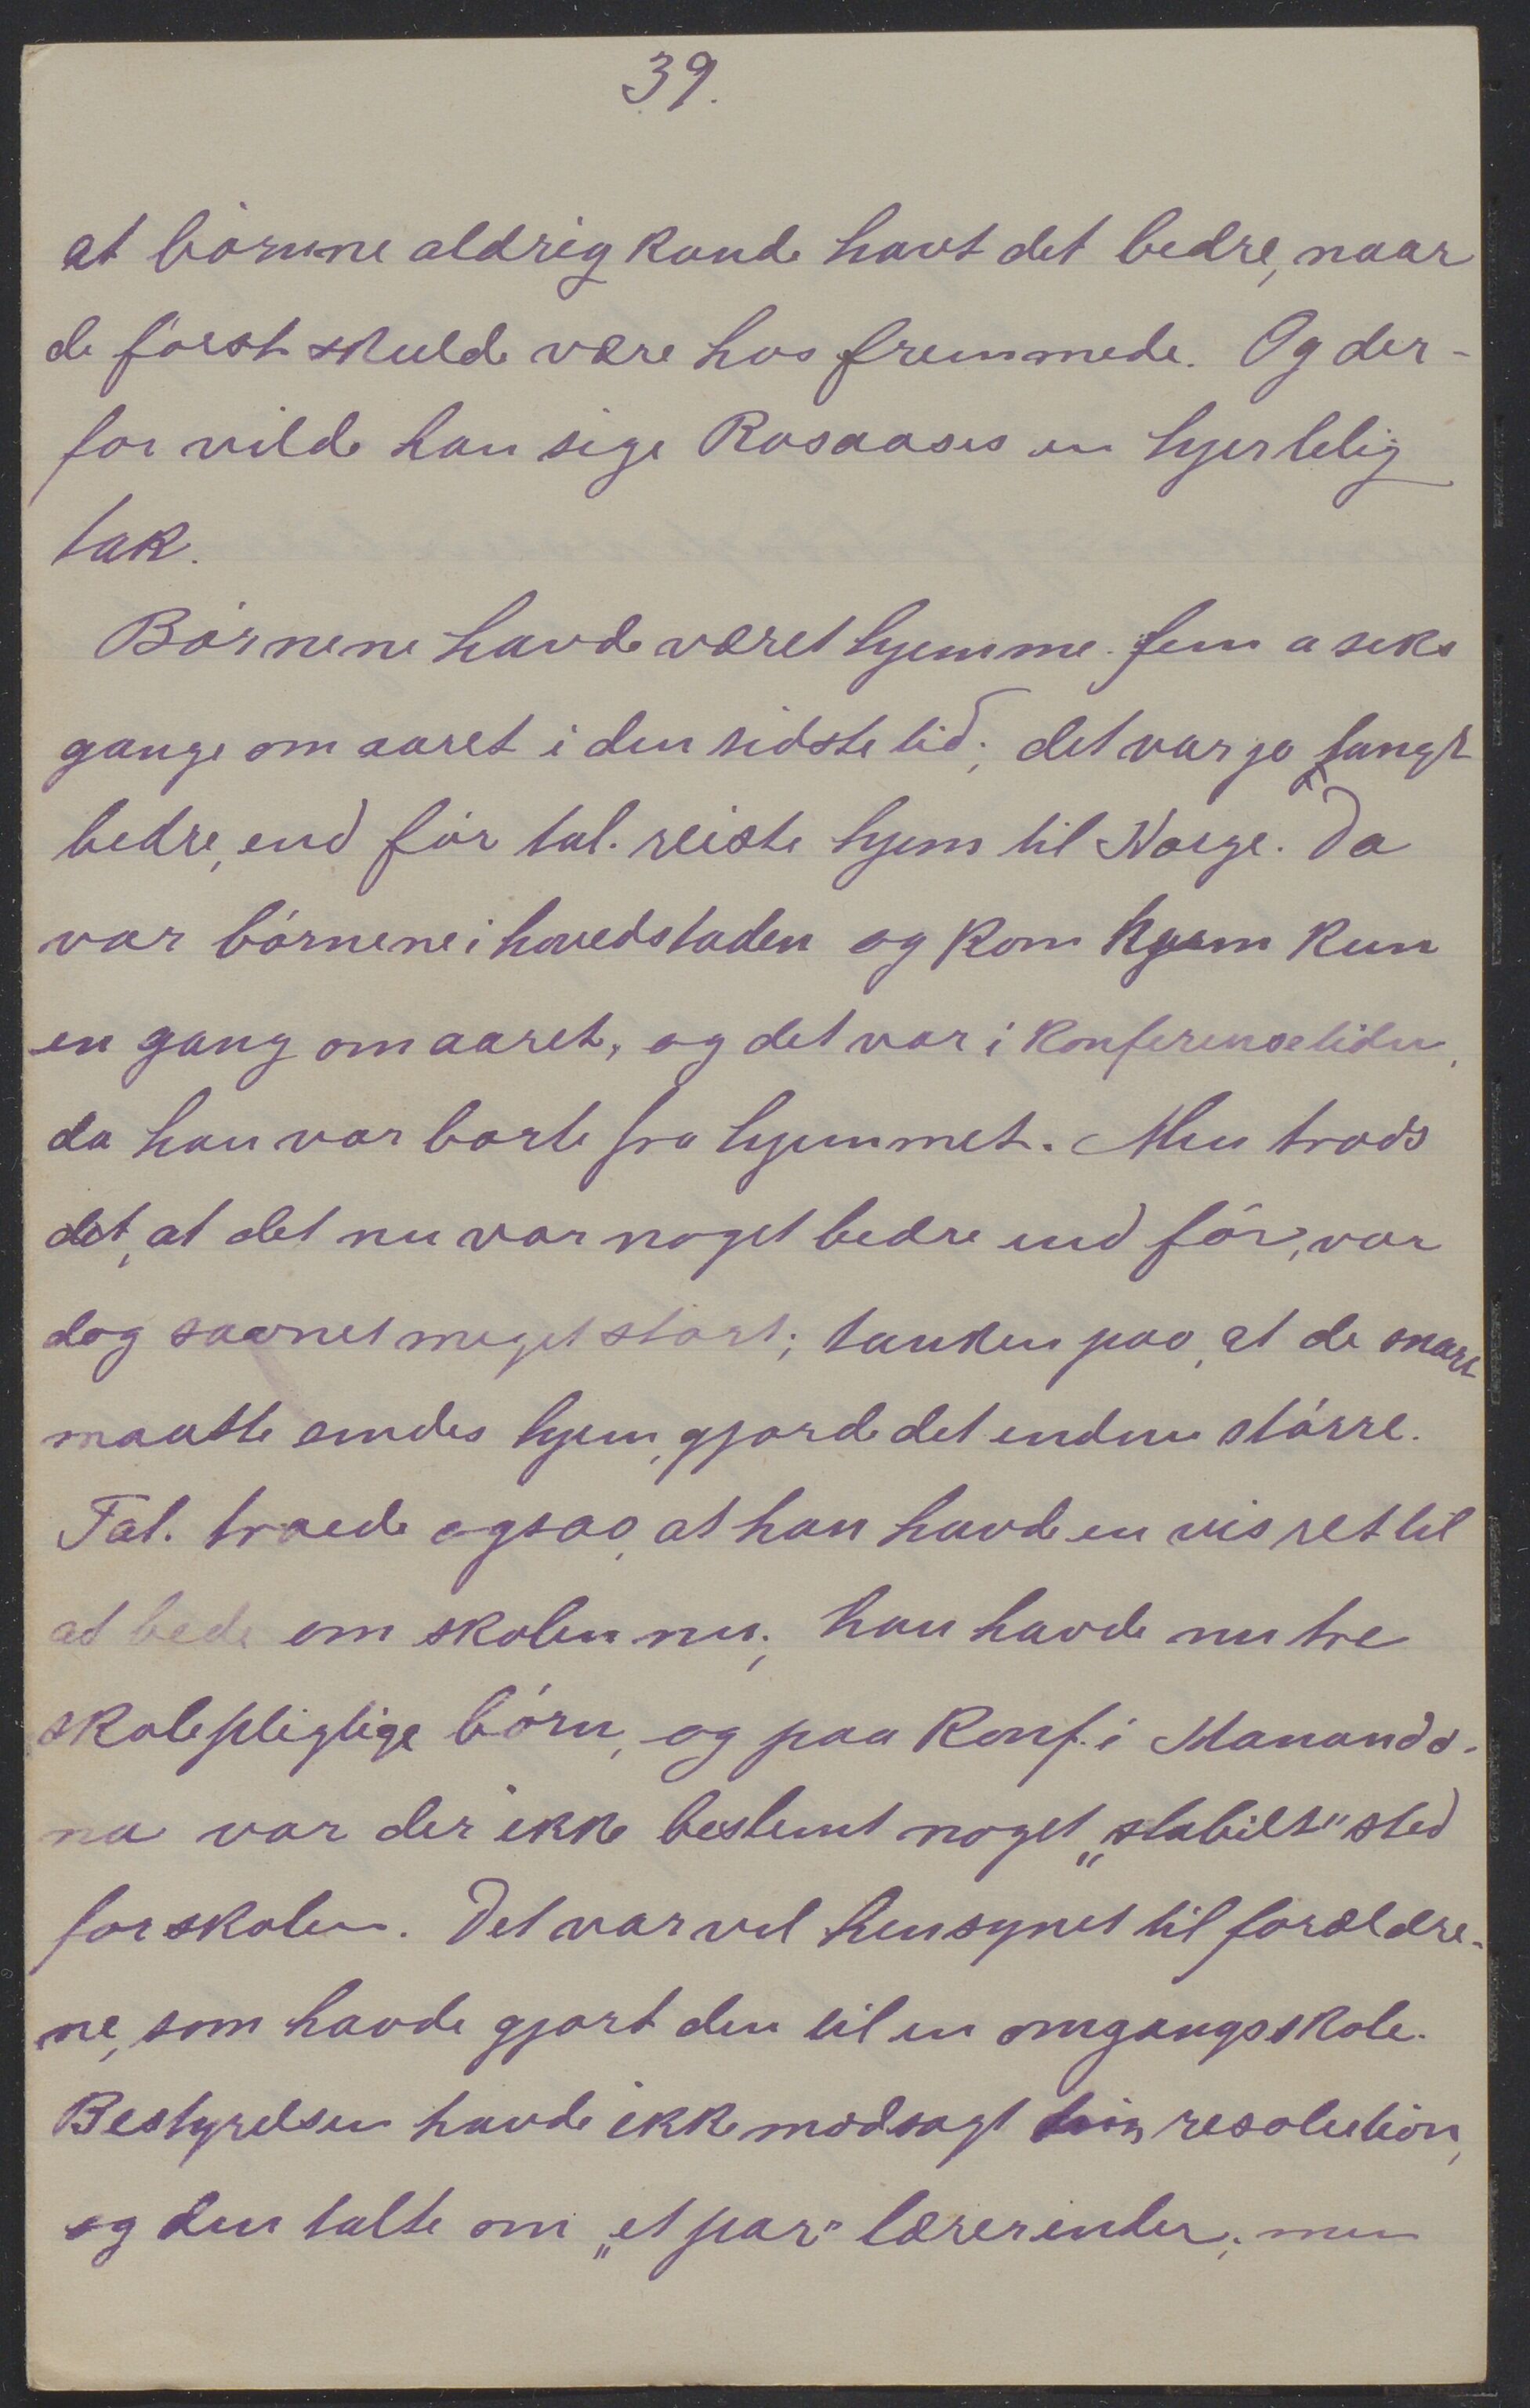 39.
at börnene aldrig kunde havt det bedre, naar
de först skulde være hos fremmede. Og der-
for vilde han sige Rosaases en hjertelig
tak.
Börnene havde været hjemme fem a seks
gange om aaret i den sidste tid; det var jo langt
bedre, end för tal. reiste hjem til Norge. Da
var börnene i hovedstaden og kom hjem kun
en gang om aaret, og det var i konferensetiden,
da han var borte fra hjemmet. Men trods
det, at det nu var noget bedre end för, var
dog savnet meget stort; tanken paa, at de snart
maatte sendes hjem, gjorde det endnu större.
Tal. troede ogsaa, at han havde en vis ret til
at bede om skolen nu; han havde nu tre
skolepligtige börn, og paa konf. i Manando-
na var der ikke bestemt noget „stabilt" sted
for skolen. Det var vel hensynet til forældre-
ne, som havde gjort den til en omgangsskole.
Bestyrelsen havde ikke modsagt resolution,
og den talte om „et par" lærerinder; men